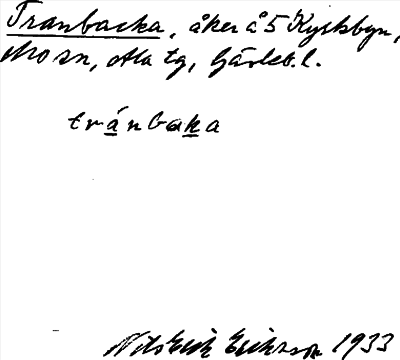 Tranbacka, åker å 5 Kyrkbyn,
Mo sn, Ala tg, Gävleb. l.
tránbaka
Nils Erik Eriksson 1933